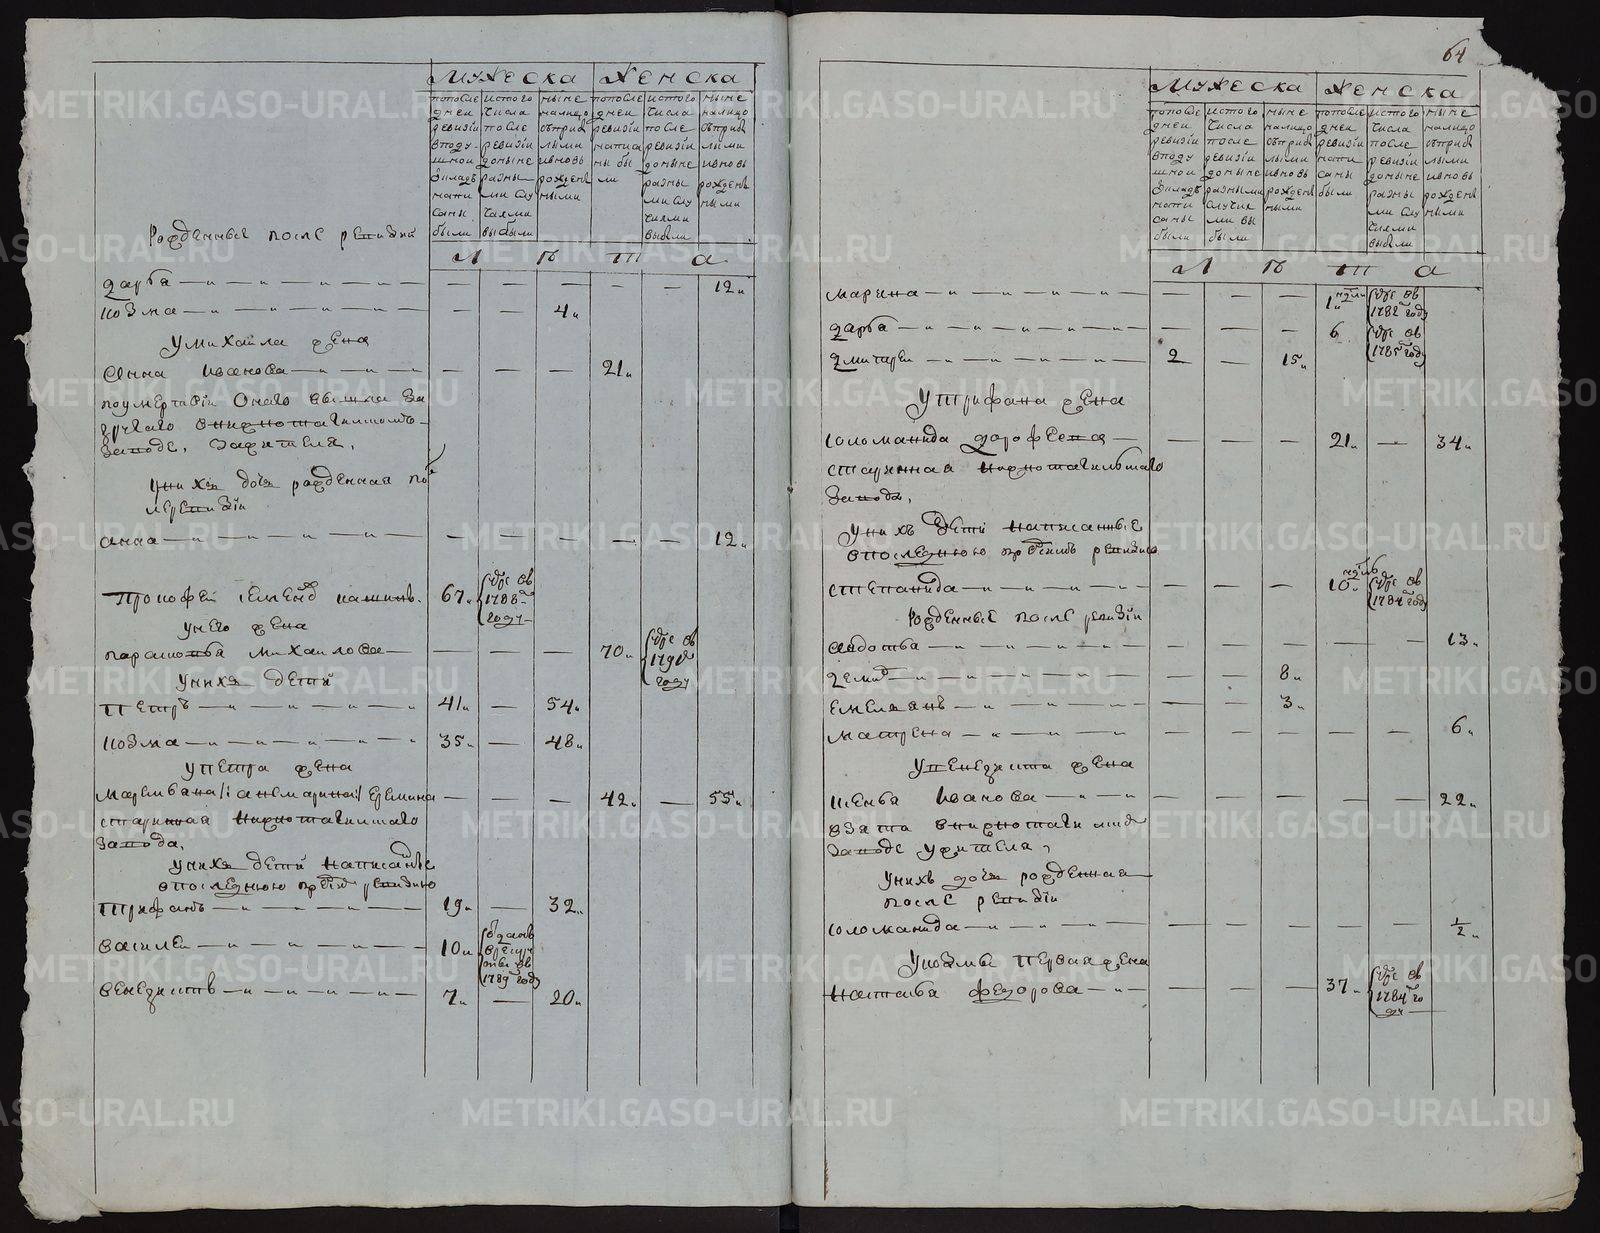 Мужеска Женска
попосле дней ревизiи вподушной окладъ написаны были
истого числа после ревизiи доныне разными случаями выбыли
ныне налицо съприбылыми ивновь рожденными
попосле дней ревизiи написаны были
истого числа после ревизiи доныне разными случаями выбыли
ныне налицо съприбылыми ивновь рожденными
Рожденные после ревизiи
Л ѣ т а
дарья 12
козма 4
умихаила жена
Анна иванова 21
поумертвiи оного вышла за
заводе, зажителя,
унихъ дочь рожденная по
слеревизiи
анна 12
Прокофей 67 умре въ 1788м году
унего жена
парасковья михаилова 70 умре въ 1791м году
унихъ дети
петръ 41 54
козма 35 48
упетра жена
Еремина 42 55
старинная нижнотагилскаго
завода,
унихъ дети написанные
впоследнюю пред сiй ревизию
трифанъ 19 32
василей 10 отданъ врекруты въ 1789м году
венедиктъ 7 20
64
Мужеска Женска
попосле дней ревизiи вподу шной окладъ написаны были
истого числа после ревизiи доныне разными случаями выбыли
ныне налицо съприбылыми ивновь рожденными
попосле дней ревизiи написаны были
истого числа после ревизiи доныне разными случаями выбыли
ныне налицо съприбылыми ивновь рожденными
Л ѣ т а
марина 1 ндли умре въ 1782м году
дарья 6 умре въ 1785м году
дмитрей 2 15
утрифана жена
соломанида дорофеева 21 34
старинная нижнотагильскаго
завода,
унихъ дети написанные
впоследнюю пред симъ ревизию
степанида 10 нд умре въ 1784м году
Рожденные после ревизiи
авдотья 13
демид 8
емельянъ 3
матрена 6
увенедикта жена
ивanова 22
взята внижнотагилском
заводе ужителя,
унихъ дочь рожденная
после ревизiи
соломанида 1/2
укозмы первая жена
наталья федорова 37 умре въ 1784м году
METRIKI.GASO-URAL.RU